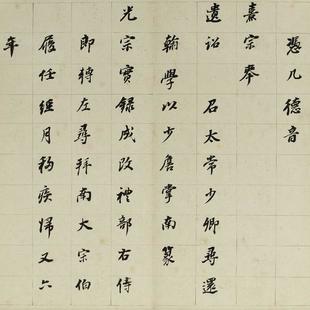 憑几德音
熹宗奉
遺詔召太常少卿尋還
翰學以少詹掌南篆
光宗實錄成改禮部右侍
即轉左尋拜南大宗伯
履任經月移疾歸又六
年